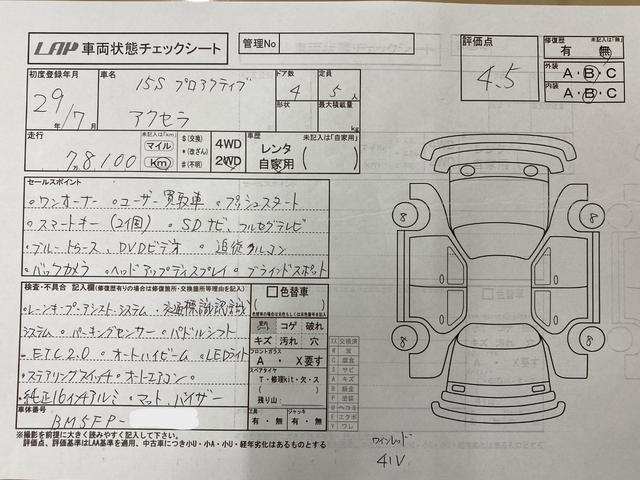 LAP 車両状態チェックシート
管理No
評価点
4.5
修復歴 未記入は「無」
有 無
外装
A・B・C
内装
A・B・C
初度登録年月
29年/7月
車名
15S プロアクティブ
アクセラ
ドア数
4
定員
5人
形状
最大積載量
kg
走行 未記入は「km」
7万8,100
マイル
km
$(交換)
*(改ざん)
#(不明)
4WD
2WD
車歴 未記入は「自家用」
レンタ
自家用
セールスポイント
・ワンオーナー ・ユーザー買取車 ・プッシュスタート
・スマートキー(2個) ・SDナビ、フルセグテレビ
・ブルートゥース、DVDビデオ ・追従クルコン
・バックカメラ ・ヘッドアップディスプレイ ・ブラインドスポット
検査・不具合 記入欄(修復歴有りの場合は修復箇所・交換箇所等理由を記入)
・レーンキープ・アシストシステム ・交通標識認識
システム ・パーキングセンサー ・パドルシフト
・ETC2.0 ・オートハイビーム ・LEDライト
・ステアリングスイッチ ・オートエアコン
・純正16インチアルミ ・マット、バイザー
色替車
室内シート
コゲ 破れ
キズ 汚れ 穴
フロントガラス
A ・ X要す
スペアタイヤ
T・修理kit・欠・ス
残り山
工具
有・無
ジャッキ
有・無
XX 交換済
W 波
C 腐食
S サビ
A キズ
B 鈑金
P 塗装
U ヘコミ
E エクボ
Y ワレ
車体番号
BM5FP-
8
8
8
8
ワインレッド
41V
※撮影を前提に大きく読みやすく記入して下さい。
評価点、評価基準はLAA基準を適用、中古車につき小U・小A・小U・経年劣化はあるものとする